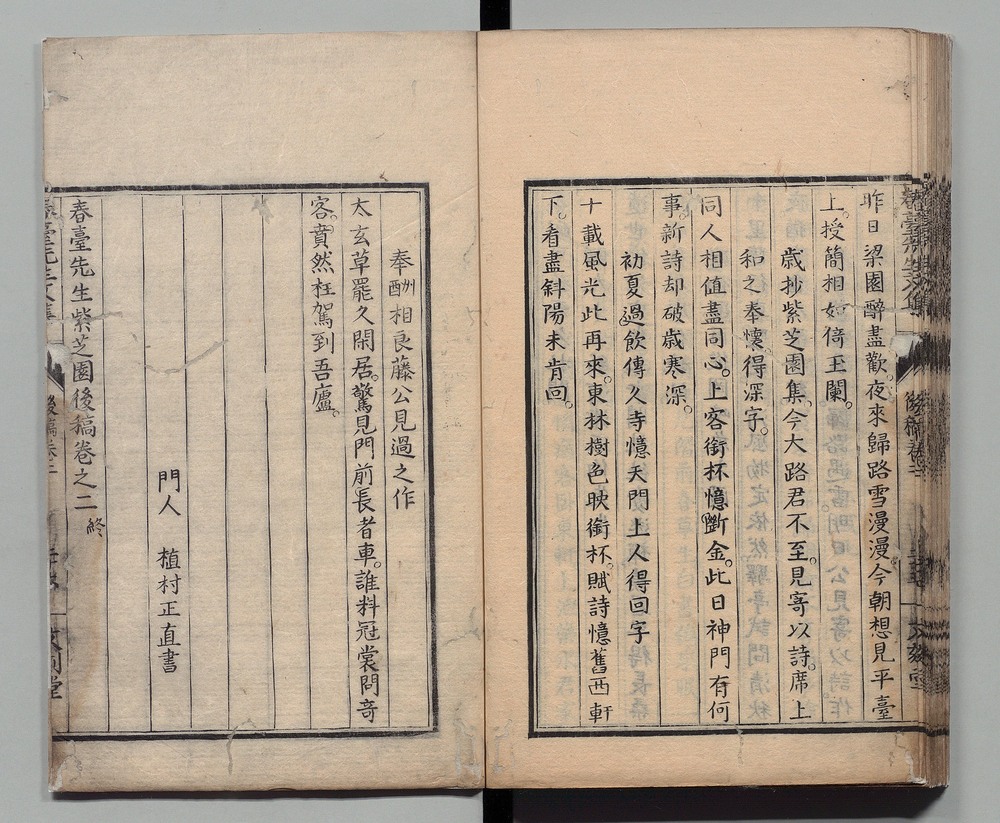 昨日梁園醉盡歡。夜來歸路雪漫漫。今朝想見平臺
上。授簡相如倚玉闌。
歲抄紫芝園集。今大路君不至。見寄以詩。席上
和之奉懷。得深字。
同人相值盡同心。上客銜杯憶斷金。此日神門有何
事。新詩却破歲寒深。
初夏過飲傳久寺憶天門上人得回字
十載風光此再來。東林樹色映銜杯。賦詩憶舊西軒
下。看盡斜陽未肯回。
奉酬相良藤公見過之作
太玄草罷久閑居。驚見門前長者車。誰料冠裳問奇
客。賁然枉駕到吾廬。
門人 植村正直書
春臺先生紫芝園後稿卷之二 終